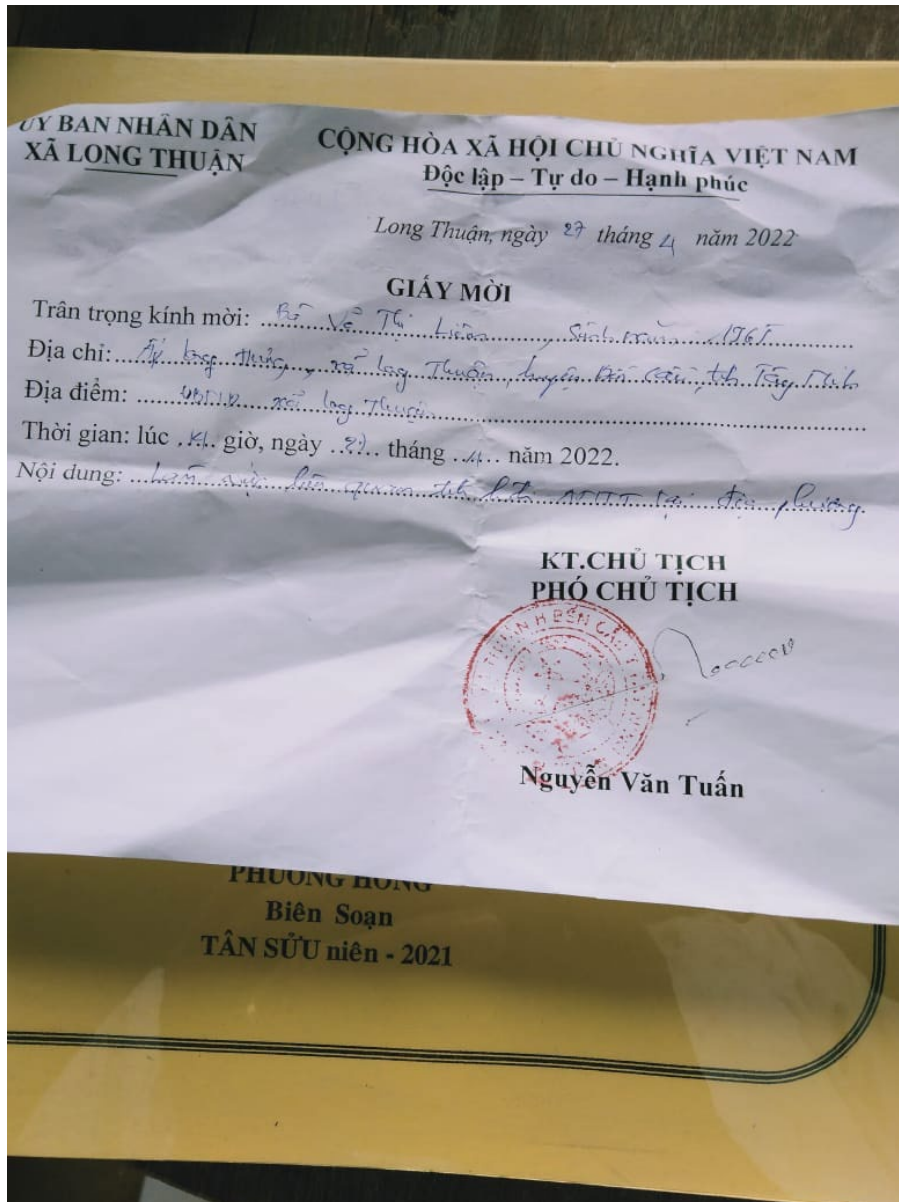 ỦY BAN NHÂN DÂN
XÃ LONG THUẬN
CỘNG HÒA XÃ HỘI CHỦ NGHĨA VIỆT NAM
Độc lập – Tự do – Hạnh phúc
Long Thuận, ngày 27 tháng 4 năm 2022
GIẤY MỜI
Trân trọng kính mời: Bà Võ Thị Liên, Sinh năm
Địa chỉ: Ấp Long xã Long Thuận, huyện Bến Cầu, tỉnh Tây Ninh
Địa điểm: UBND xã Long Thuận
Thời gian: lúc giờ, ngày tháng 4 năm 2022.
Nội dung: Làm việc liên quan tình hình ANTT tại địa phương
KT.CHỦ TỊCH
PHÓ CHỦ TỊCH
H BẾN CẦU
Nguyễn Văn Tuấn
PHƯƠNG HỒNG
Biên Soạn
TÂN SỬU niên - 2021